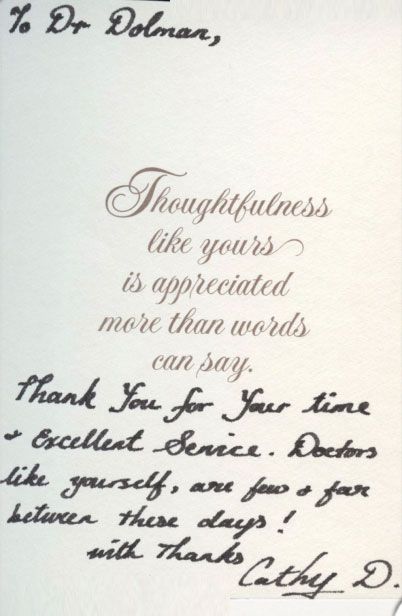 To Dr Dolman,
Thoughtfulness
like yours
is appreciated
more than words
can say.
Thank You for Your time
& Excellent Service. Doctors
like yourself, are few & far
between these days!
with Thanks
Cathy D.